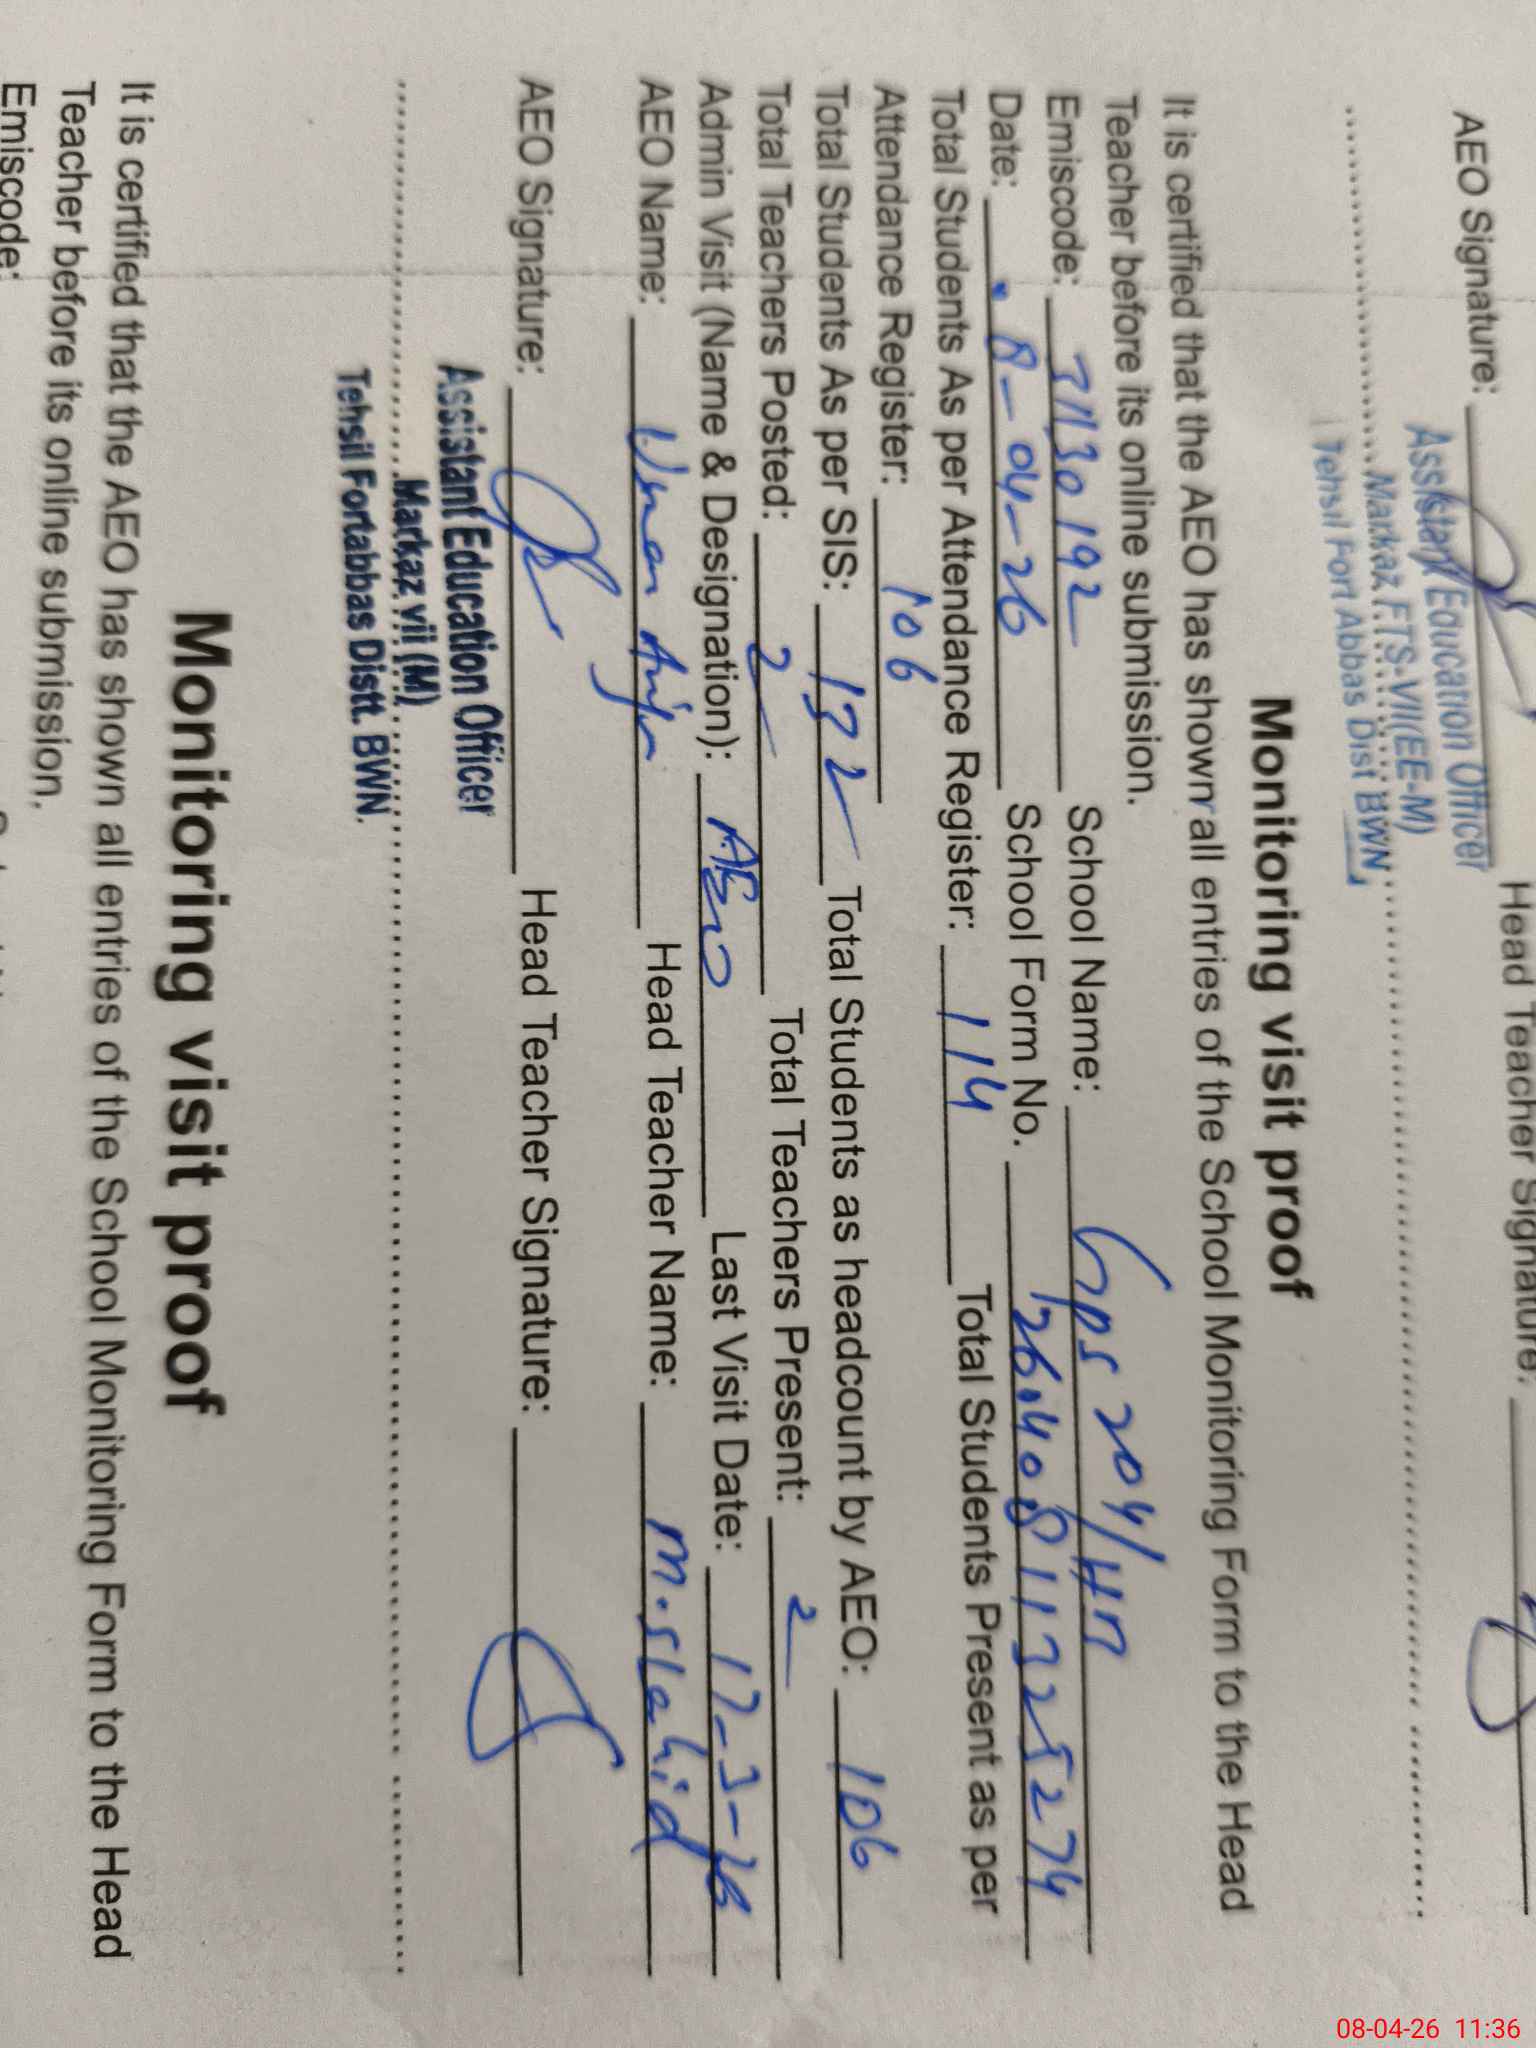 AEO Signature: Head Teacher Signature:
Assistant Education Officer
Markaz FTS-VII(EE-M)
Tehsil Fort Abbas Dist BWN
Monitoring visit proof
It is certified that the AEO has shown all entries of the School Monitoring Form to the Head
Teacher before its online submission.
Emiscode: 31130192 School Name: GPS 204/HR
Date: 8-04-26 School Form No. 26040811325274
Total Students As per Attendance Register: 114 Total Students Present as per
Attendance Register: 106
Total Students As per SIS: 132 Total Students as headcount by AEO: 106
Total Teachers Posted: 2 Total Teachers Present: 2
Admin Visit (Name & Designation): AEO Last Visit Date: 17-3-26
AEO Name: Head Teacher Name: M.
AEO Signature: Head Teacher Signature:
Assistant Education Officer
Markaz vii (M)
Tehsil Fortabbas Distt. BWN.
Monitoring visit proof
It is certified that the AEO has shown all entries of the School Monitoring Form to the Head
Teacher before its online submission.
Emiscode:
08-04-26 11:36